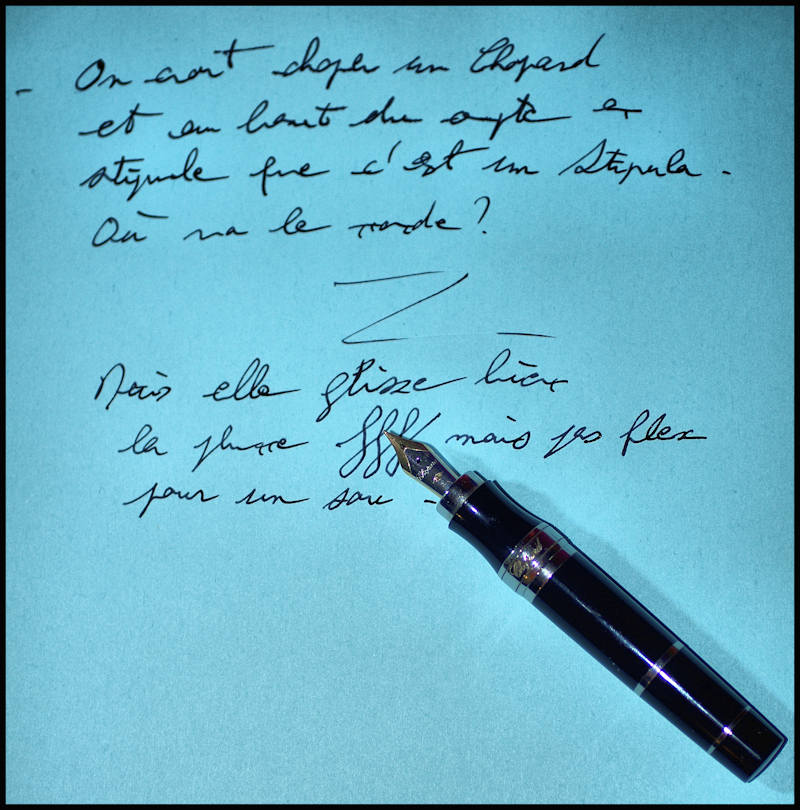 - On croit choper un Chopard
et au bout du compte on
stipule que c'est un Stipula.
Où va le monde?
Mais elle glisse bien
la plume fff mais pas flex
pour un sou -